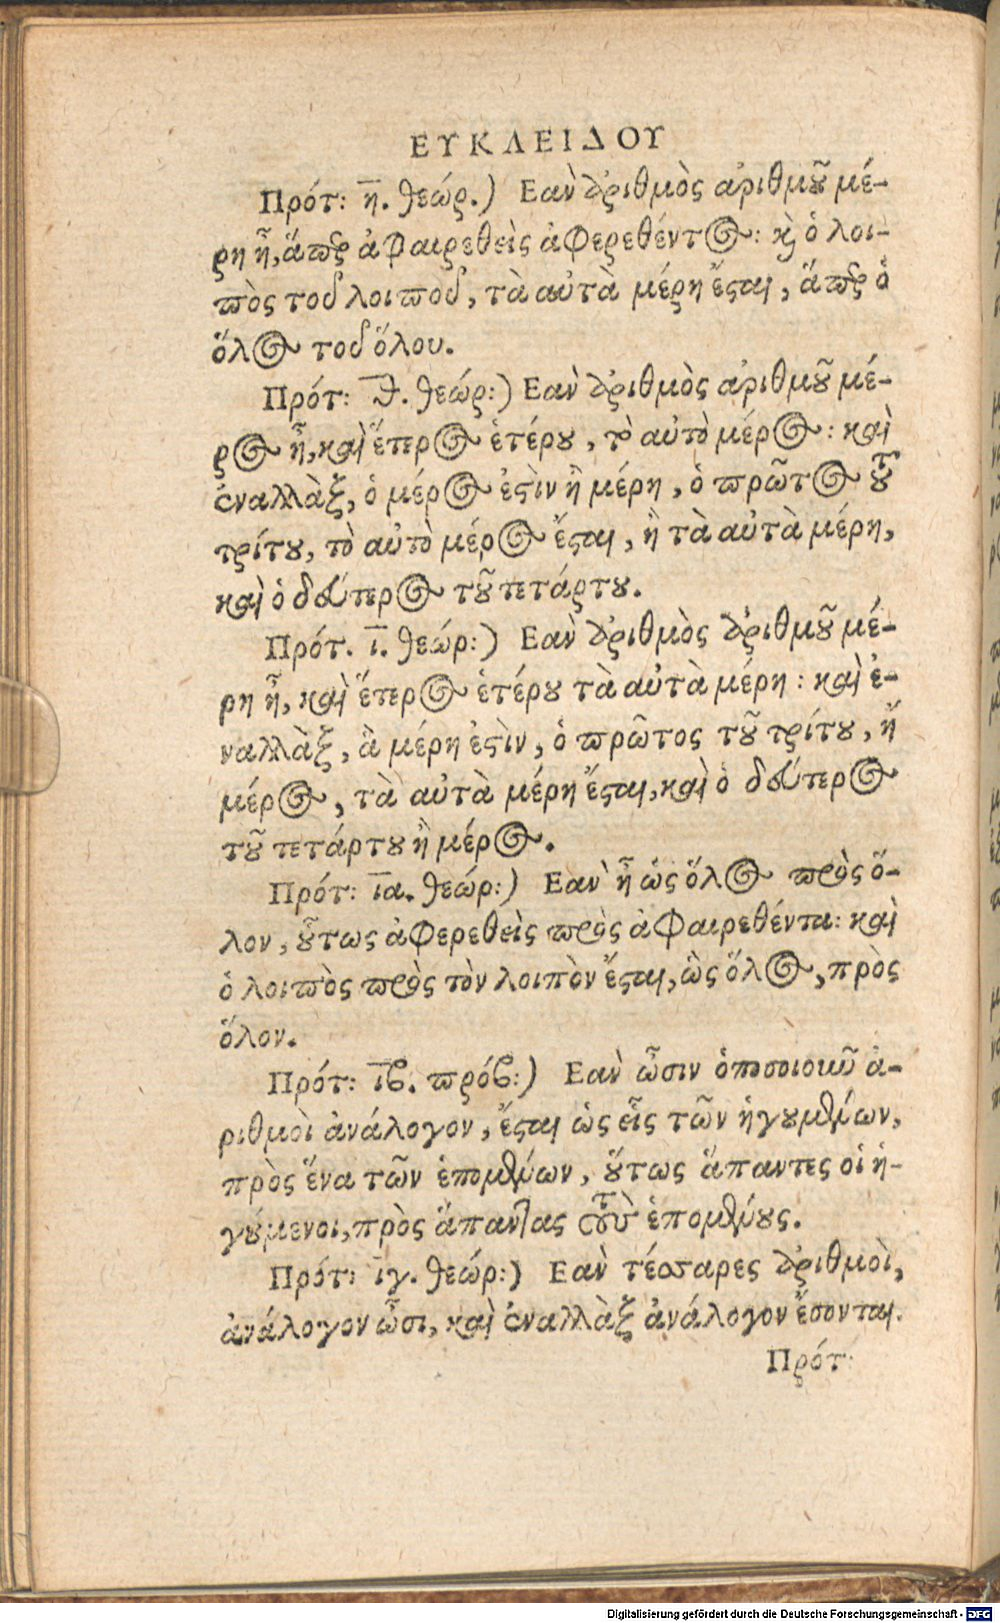 ΕΥΚΛΕΙΔΟΥ
Πρότ: η̅. θεώρ.) Εαὰν ἀριθμὸς ἀριθμοῦ μέ-
ρη ᾖ, ἅπερ ἀφαιρεθεὶς ἀφερεθέντος: καὶ ὁ λοι-
πὸς τοῦ λοιποῦ, τὰ αὐτὰ μέρη ἔσται, ἅπερ ὁ
ὅλος τοῦ ὅλου.
Πρότ: θ̅. θεώρ:) Εαὰν ἀριθμὸς ἀριθμοῦ μέ-
ρος ᾖ, καὶ ἕτερος ἑτέρου, τὸ αὐτὸ μέρος: καὶ
ἐναλλὰξ, ὁ μέρος ἐστὶν ἢ μέρη, ὁ πρῶτος τοῦ
τρίτου, τὸ αὐτὸ μέρος ἔσται, ἢ τὰ αὐτὰ μέρη,
καὶ ὁ δεύτερος τοῦ τετάρτου.
Πρότ. ι̅. θεώρ:) Εαὰν ἀριθμὸς ἀριθμοῦ μέ-
ρη ᾖ, καὶ ἕτερος ἑτέρου τὰ αὐτὰ μέρη: καὶ ἐ-
ναλλὰξ, ἃ μέρη ἐστὶν, ὁ πρῶτος τοῦ τρίτου, ἢ
μέρος, τὰ αὐτὰ μέρη ἔσται, καὶ ὁ δεύτερος
τοῦ τετάρτου ἢ μέρος.
Πρότ: ια̅. θεώρ:) Εαὰν ᾖ ὡς ὅλος πρὸς ὅ-
λον, οὕτως ἀφερεθεὶς πρὸς ἀφαιρεθέντα: καὶ
ὁ λοιπὸς πρὸς τὸν λοιπὸν ἔσται, ὡς ὅλος, πρὸς
ὅλον.
Πρότ: ιβ̅. πρόβ:) Εαὰν ὦσιν ὁποσοιοιοῦν ἀ-
ριθμοὶ ἀνάλογον, ἔσται ὡς εἷς τῶν ἡγουμένων,
πρὸς ἕνα τῶν ἑπομένων, οὕτως ἅπαντες οἱ ἡ-
γούμενοι, πρὸς ἅπαντας τοὺς ἑπομένους.
Πρότ: ιγ. θεώρ:) Εαὰν τέσσαρες ἀριθμοὶ,
ἀνάλογον ὦσι, καὶ ἐναλλὰξ ἀνάλογον ἔσονται.
Πρότ:
Digitalisierung gefördert durch die Deutsche Forschungsgemeinschaft - DFG